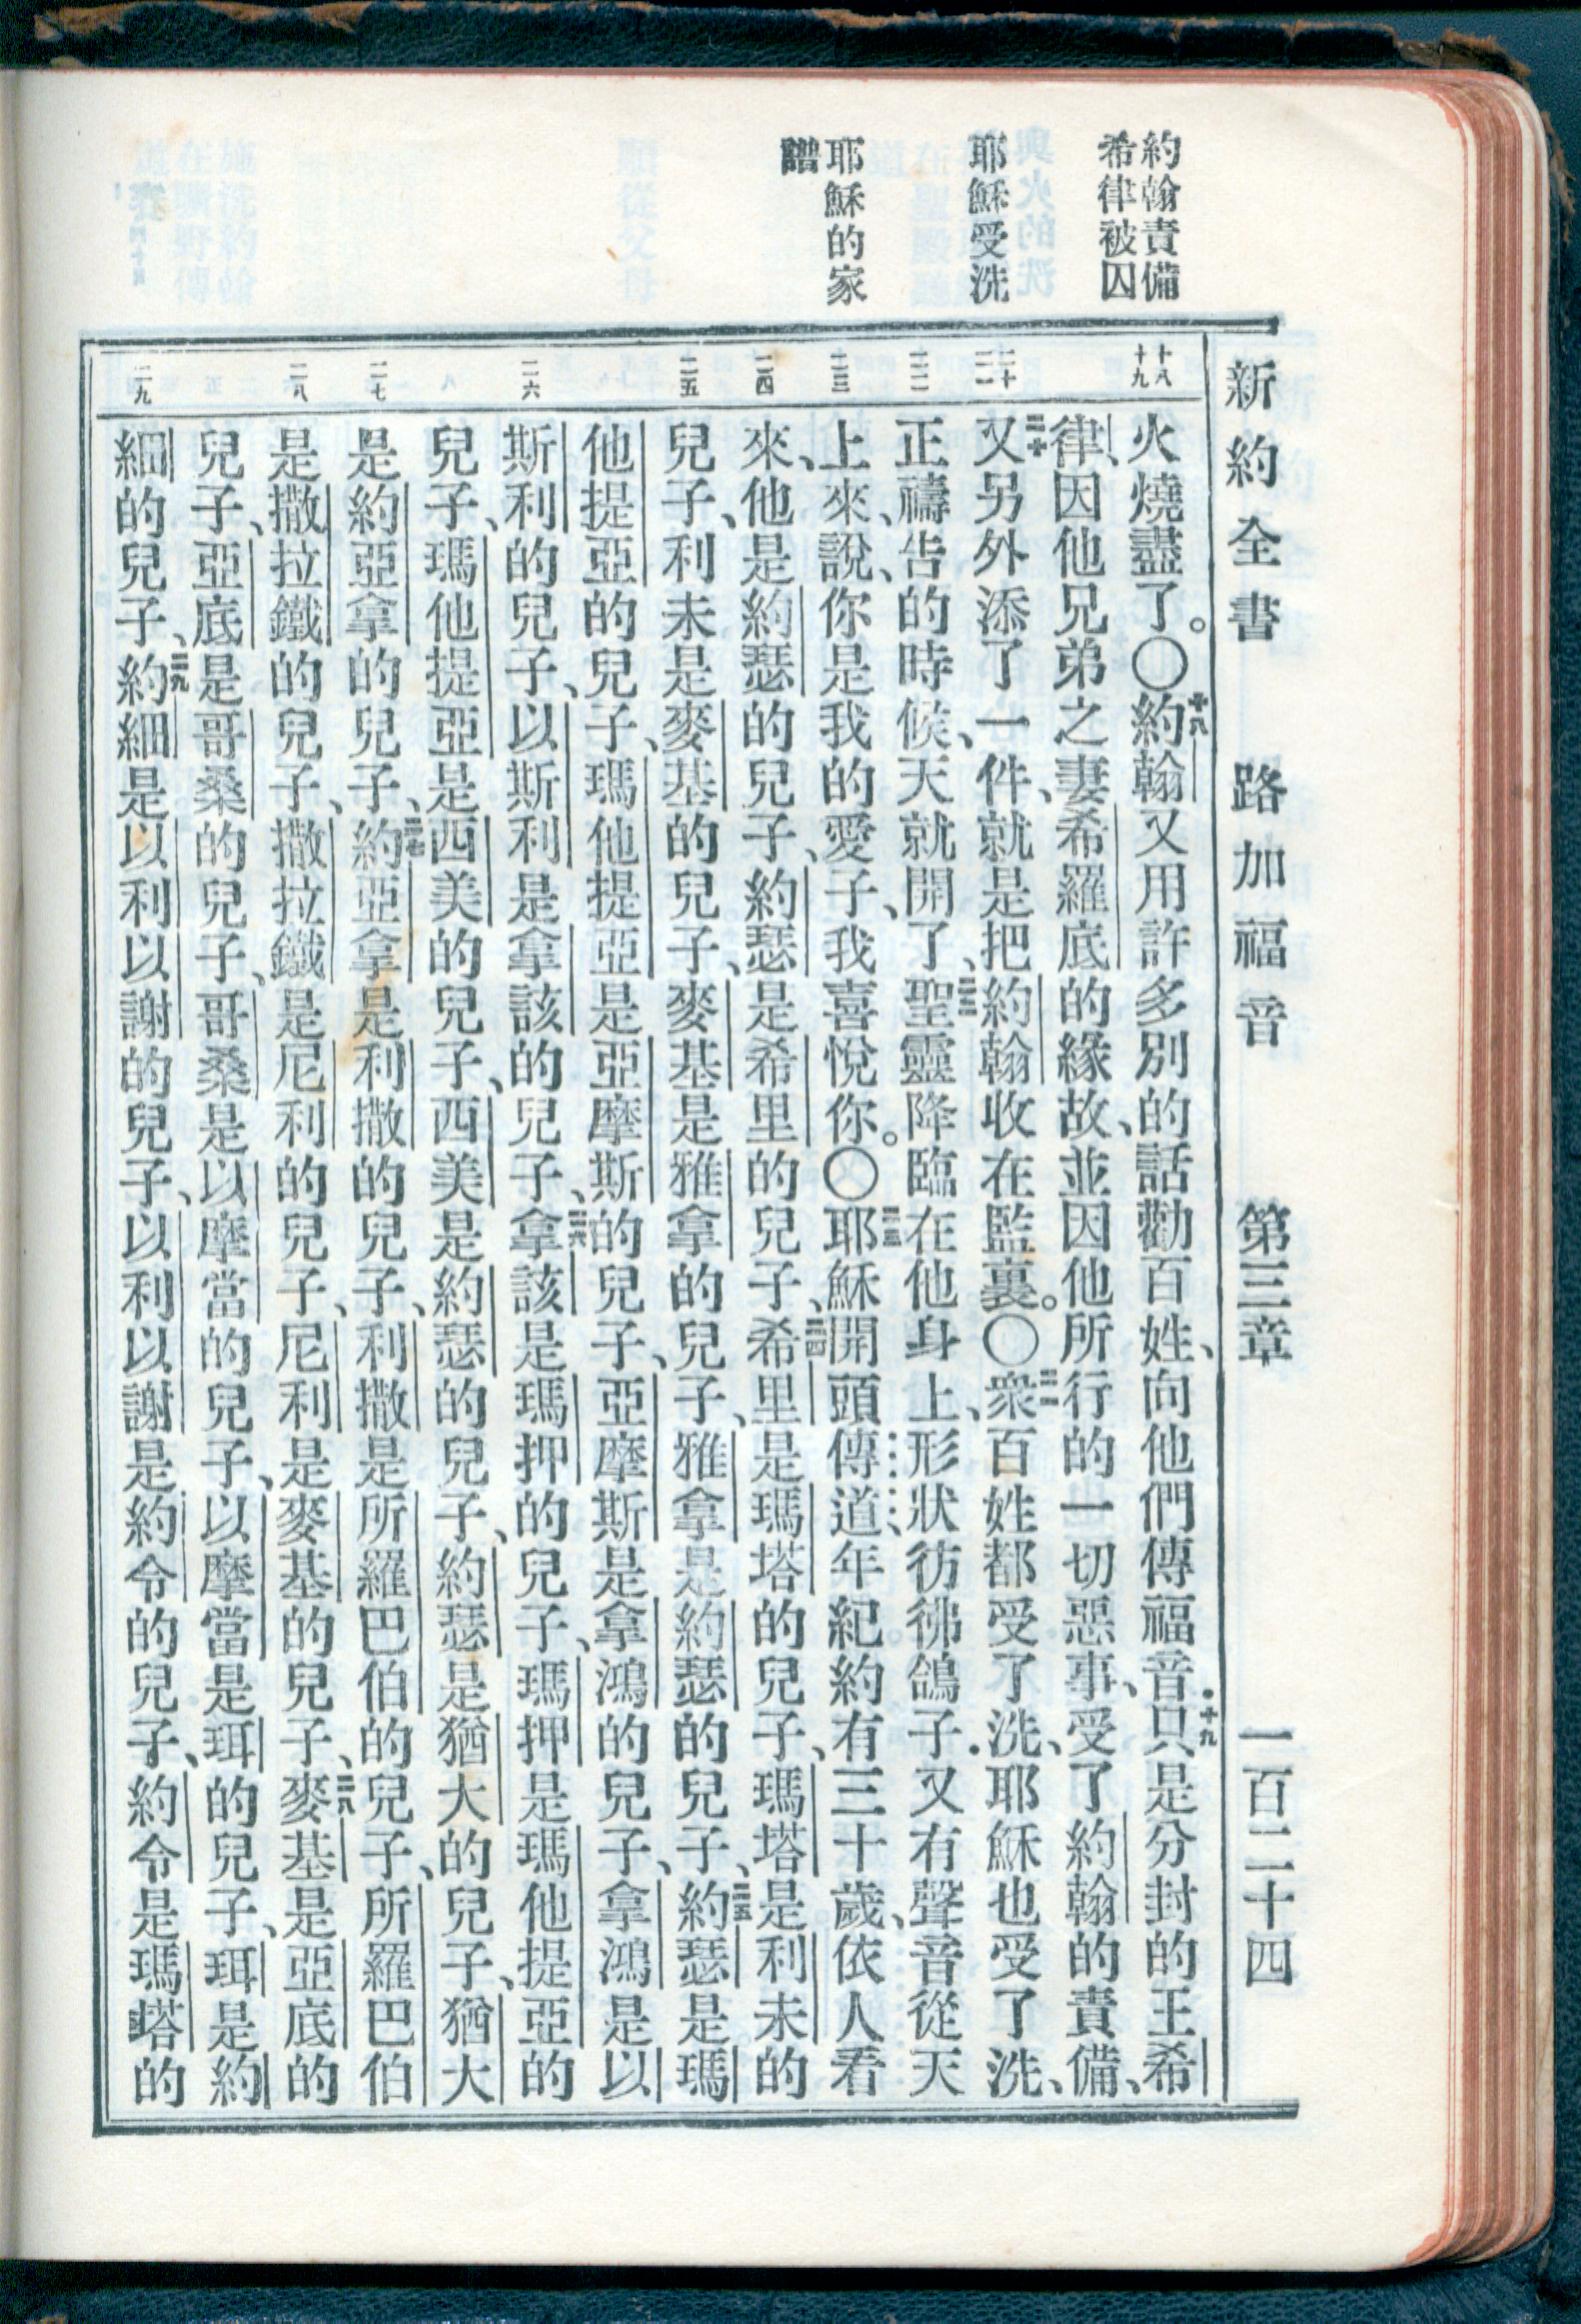 新約全書　路加福音　第三章　一百二十四
約翰責備
希律被囚
耶穌受洗
耶穌的家
譜
十八
十九
二十
二一
二二
二三
二四
二五
二六
二七
二八
二九
火燒盡了。〇十八約翰又用許多別的話勸百姓、向他們傳福音．十九只是分封的王希
律、因他兄弟之妻希羅底的緣故、並因他所行的一切惡事、受了約翰的責備、
二十又另外添了一件、就是把約翰收在監裏。〇二一衆百姓都受了洗、耶穌也受了洗、
正禱告的時候、天就開了、二二聖靈降臨在他身上、形狀彷彿鴿子．又有聲音從天
上來、說、你是我的愛子、我喜悅你。〇二三耶穌開頭傳道、年紀約有三十歲、依人看
來、他是約瑟的兒子、約瑟是希里的兒子、二四希里是瑪塔的兒子、瑪塔是利未的
兒子、利未是麥基的兒子、麥基是雅拿的兒子、雅拿是約瑟的兒子、二五約瑟是瑪
他提亞的兒子、瑪他提亞是亞摩斯的兒子、亞摩斯是拿鴻的兒子、拿鴻是以
斯利的兒子、以斯利是拿該的兒子、二六拿該是瑪押的兒子、瑪押是瑪他提亞的
兒子、瑪他提亞是西美的兒子、西美是約瑟的兒子、約瑟是猶大的兒子、猶大
是約亞拿的兒子、二七約亞拿是利撒的兒子、利撒是所羅巴伯的兒子、所羅巴伯
是撒拉鐵的兒子、撒拉鐵是尼利的兒子、尼利是麥基的兒子、二八麥基是亞底的
兒子、亞底是哥桑的兒子、哥桑是以摩當的兒子、以摩當是珥的兒子、珥是約
細的兒子、二九約細是以利以謝的兒子、以利以謝是約令的兒子、約令是瑪塔的